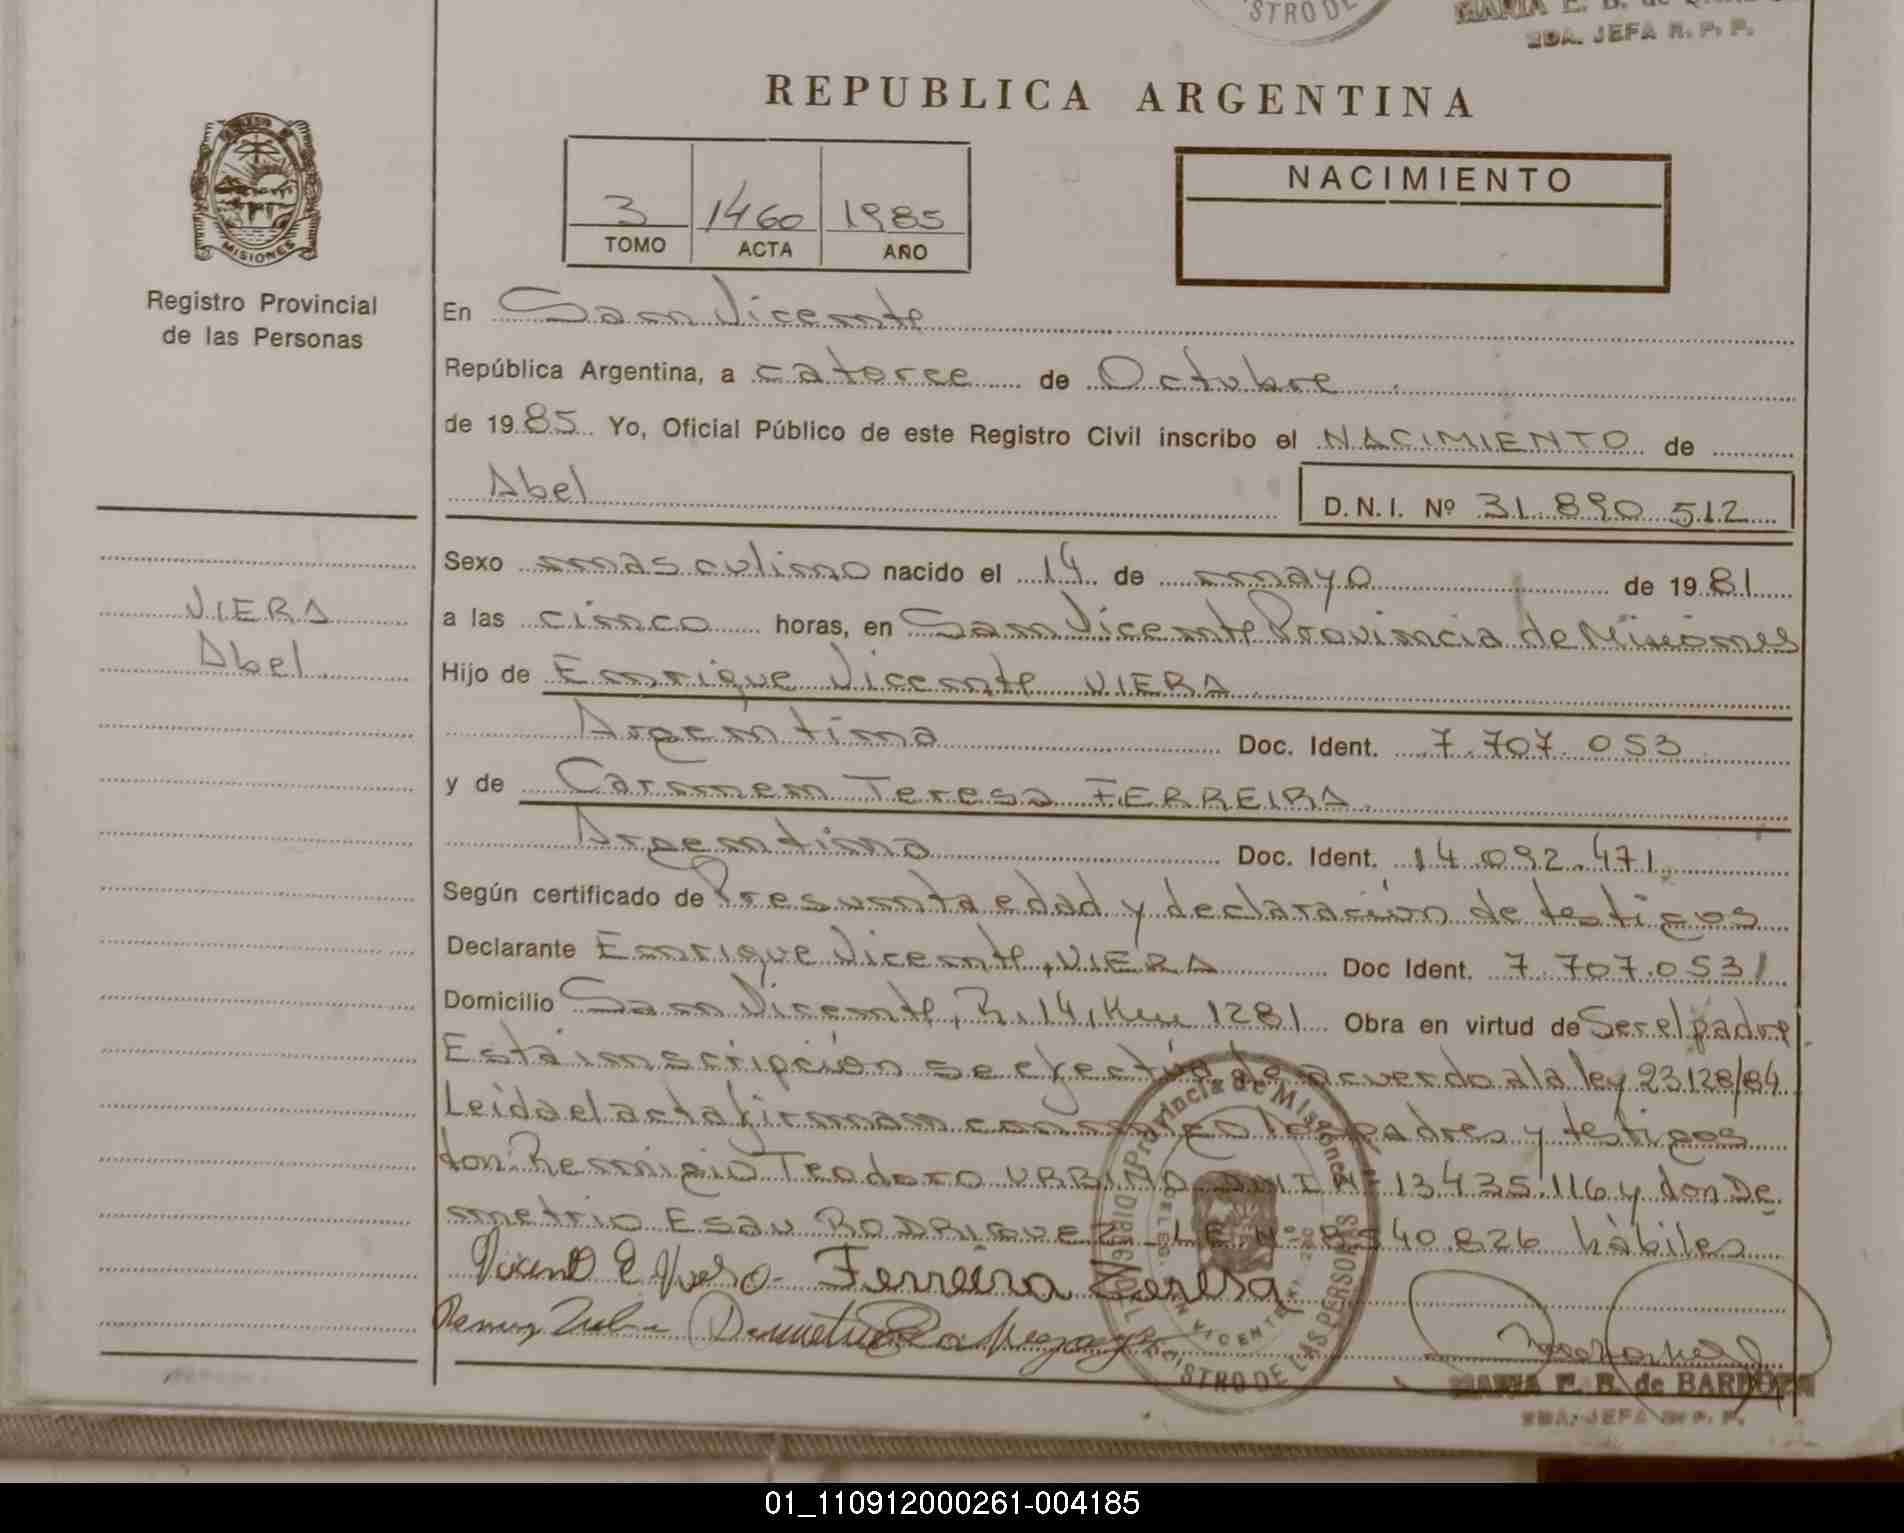 STRO DE
MARIA E. B. de
2DA. JEFA R. P. P.
REPUBLICA ARGENTINA
MISIONES
Registro Provincial
de las Personas
3 1460 1985
TOMO ACTA AÑO
NACIMIENTO
En San Vicente
República Argentina, a catorce de Octubre
de 1985 Yo, Oficial Público de este Registro Civil inscribo el NACIMIENTO de
Abel D.N.I. Nº 31.890.512
VIERA
Abel
Sexo masculino nacido el 14 de mayo de 1981
a las cinco horas, en San Vicente Provincia de Misiones
Hijo de Enrique Vicente VIERA
Argentina Doc. Ident. 7.707.053
y de Carmen Teresa FERREIRA
Argentina Doc. Ident. 14.092.471
Según certificado de Presunta edad y declaración de testigos
Declarante Enrique Vicente, VIERA Doc Ident. 7.707.053
Domicilio San Vicente, R. 14, Km 1281 Obra en virtud de Ser el padre
Esta inscripción se efectúa de acuerdo a la ley 23.128/84
Leida el acta firman conmigo los padres y testigos
don Remigio Teodoro URBINO D.N.I Nº 13.435.116 y don De
metrio Esau RODRIGUEZ L.E. Nº 8.540.826 hábiles
Ferreira Teresa
Provincia de Misiones
SAN VICENTE
REGISTRO DE LAS PERSONAS
MARIA E. B. de BARBOZA
2DA. JEFA R. P. P.
01_110912000261-004185